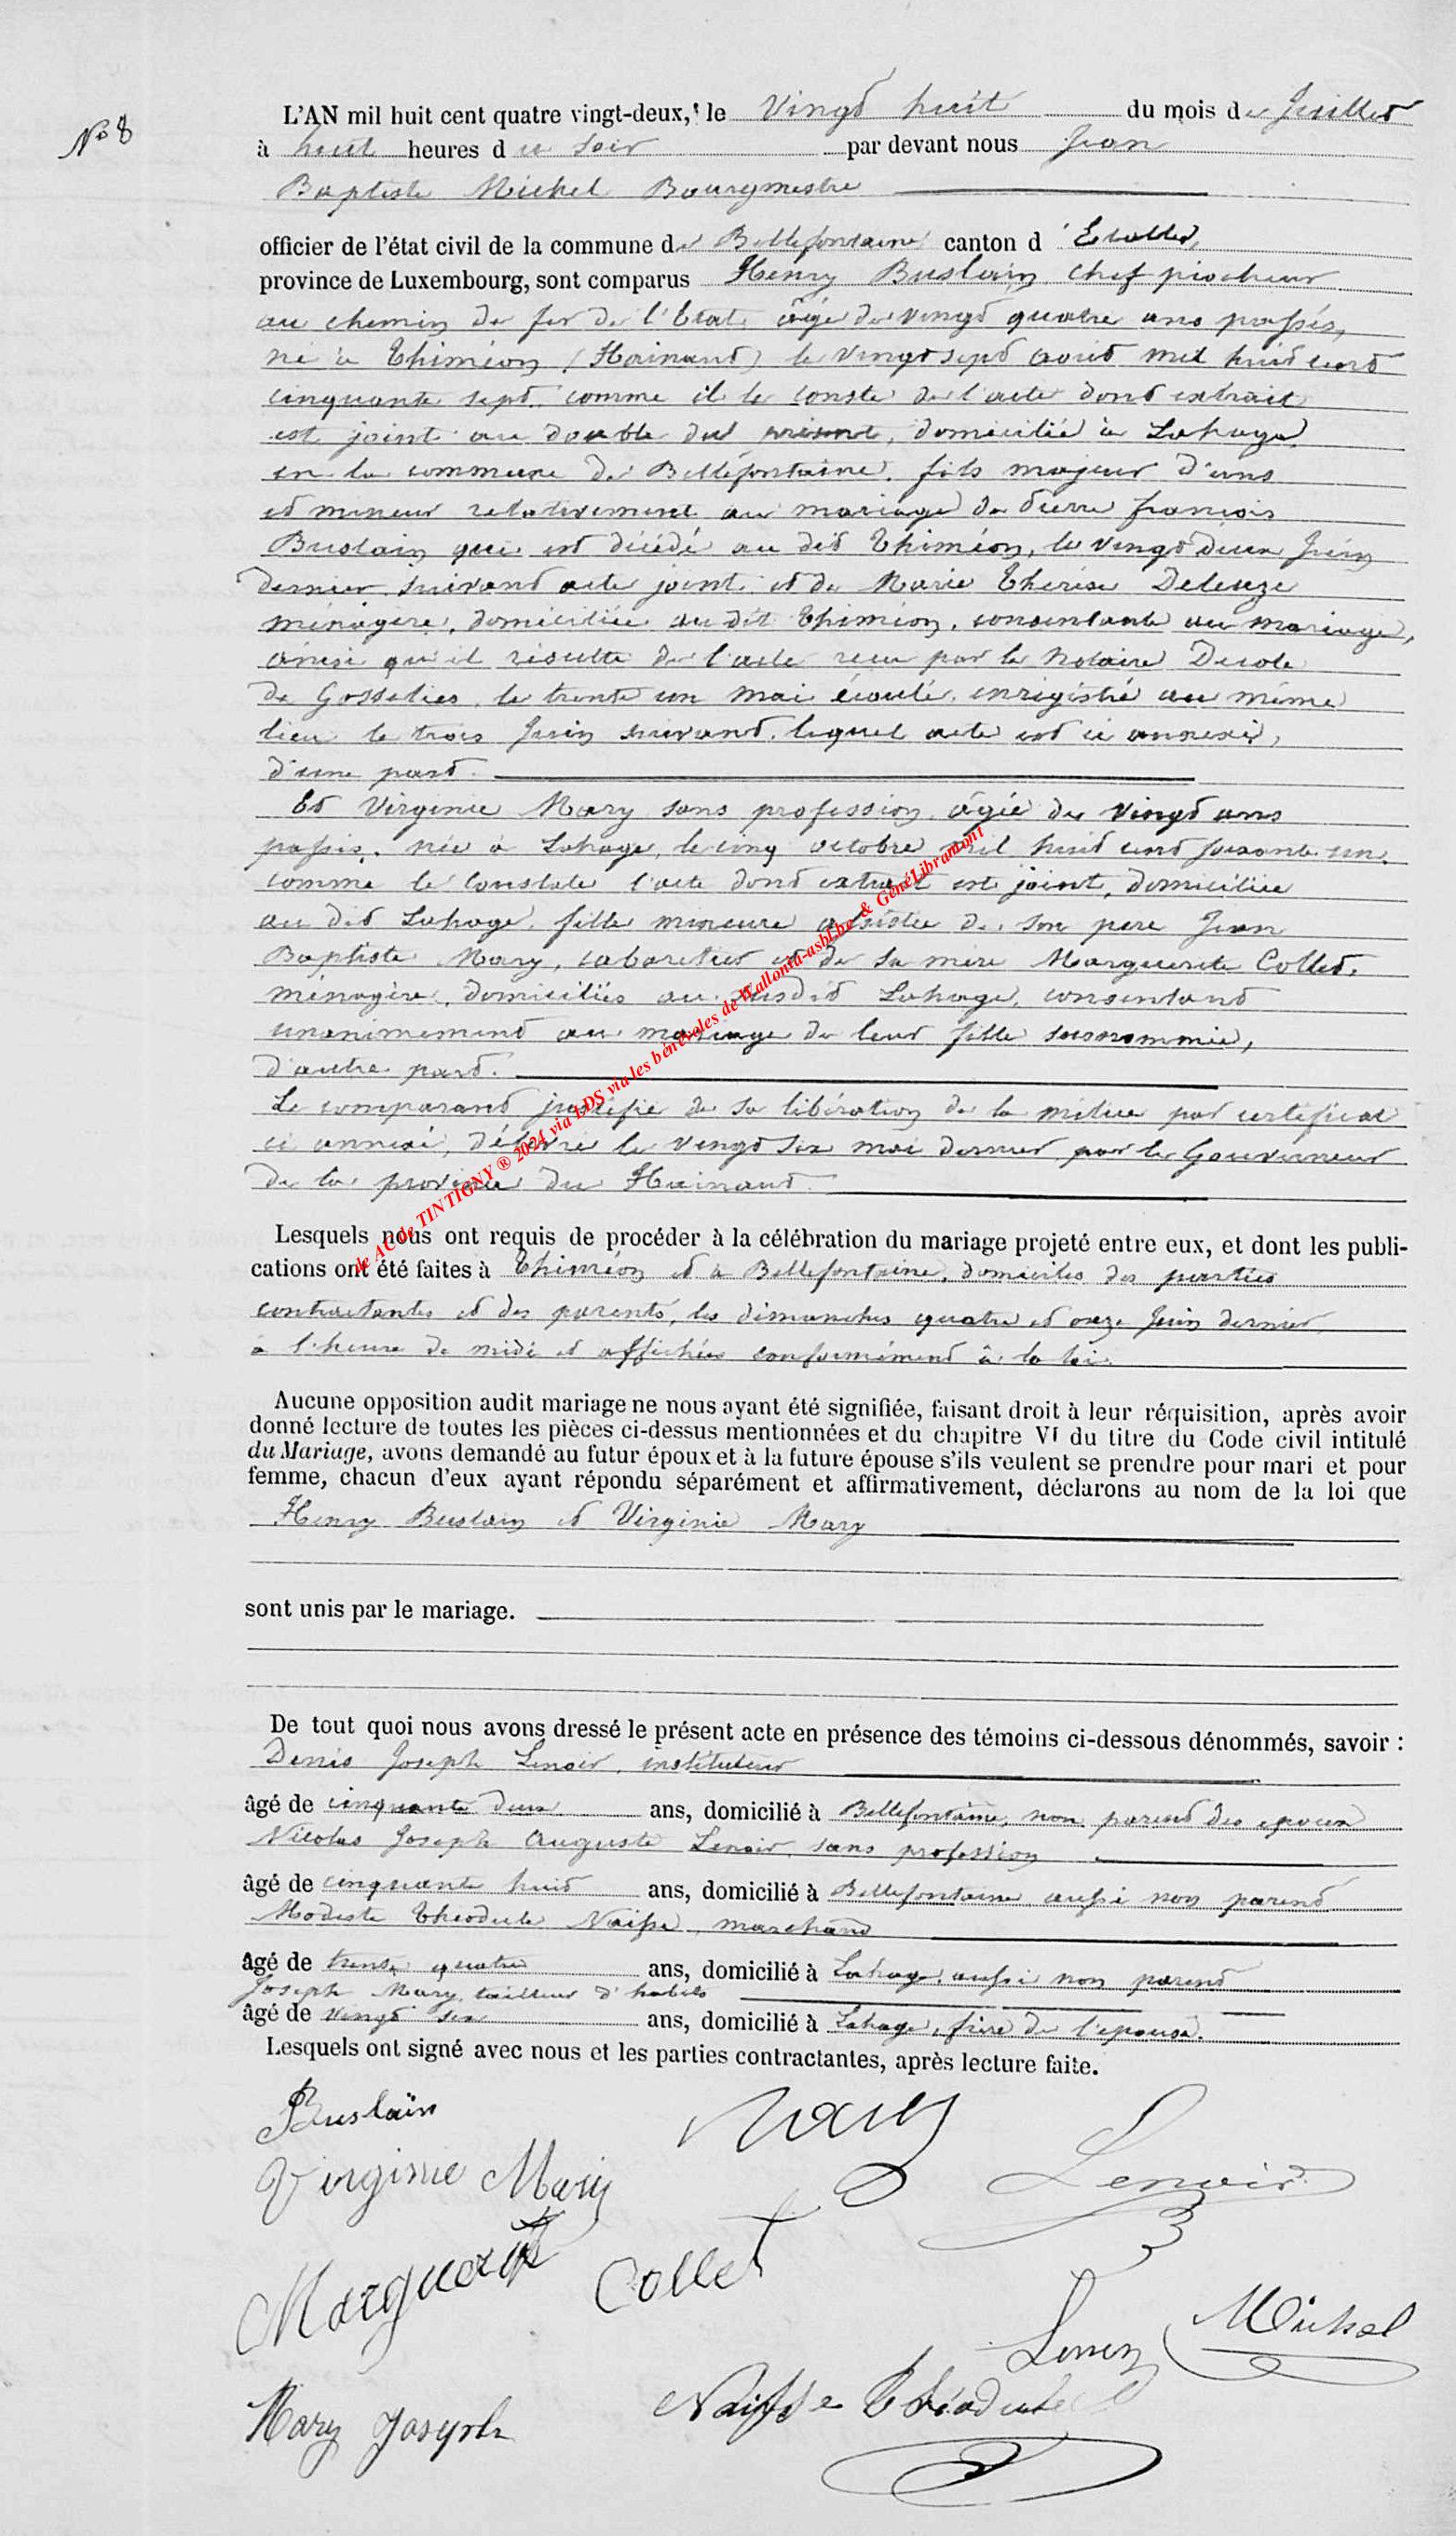 No 8
L'AN mil huit cent quatre vingt-deux, le vingt huit du mois de Juillet
à huit heures du soir par devant nous Jean
Baptiste Michel Bourgmestre
officier de l'état civil de la commune de Bellefontaine canton d'Etalle,
province de Luxembourg, sont comparus Henry Buslain, chef piocheur
au chemin de fer de l'Etat, âgé de vingt quatre ans passés,
né à Thiméon (Hainaut) le vingt sept août mil huit cent
cinquante sept. comme il le conste de l'acte dont extrait
est joint au double du présent, domicilié à Lahage,
en la commune de Bellefontaine, fils majeur d'ans
et mineur relativement au mariage de Pierre François
Buslain qui est décédé au dit Thiméon, le vingt deux Juin
dernier suivant acte joint et de Marie Thérèse Deleuze
ménagère, domiciliée au dit Thiméon, consentante au mariage,
ainsi qu'il résulte de l'acte reçu par le Notaire
de Gosselies, le trente un mai écoulé, enrigistré au même
lieu le trois Juin suivant, lequel acte est ci annexé,
d'une part.
Et Virginie Mary sans profession, âgée de vingt ans
passés, née à Lahage, le cinq octobre mil huit cent soixante un,
comme le constate l'acte dont extrait est joint, domiciliée
au dit Lahage, fille mineure assistée de son père Jean
Baptiste Mary, cabaretier et de sa mère Marguerite Collet,
ménagère, domiciliés au susdit Lahage, consentant
unanimement au mariage de leur fille susnommée,
d'autre part.
Le comparant justifie de sa libération de la milice par certificat
ci annexé, délivré le vingt six mai dernier par le Gouverneur
de la province du Hainaut.
Lesquels nous ont requis de procéder à la célébration du mariage projeté entre eux, et dont les publi-
cations ont été faites à Thiméon et à Bellefontaine, domiciles des parties
contractantes et des parents, les dimanches quatre et onze Juin dernier,
à l'heure de midi et affichées conformément à la loi.
Aucune opposition audit mariage ne nous ayant été signifiée, faisant droit à leur réquisition, après avoir
donné lecture de toutes les pièces ci-dessus mentionnées et du chapitre VI du titre du Code civil intitulé
du Mariage, avons demandé au futur époux et à la future épouse s'ils veulent se prendre pour mari et pour
femme, chacun d'eux ayant répondu séparément et affirmativement, déclarons au nom de la loi que
Henry Buslain et Virginie Mary
sont unis par le mariage.
De tout quoi nous avons dressé le présent acte en présence des témoins ci-dessous dénommés, savoir :
Denis Joseph Lenoir, instituteur
âgé de cinquante deux ans, domicilié à Bellefontaine, non parent des époux
Nicolas Joseph Auguste Lenoir, sans profession
âgé de cinquante huit ans, domicilié à Bellefontaine aussi non parent
Modeste Théodule Naisse, marchand
âgé de trente quatre ans, domicilié à Lahage, aussi non parent
Joseph Mary, tailleur d'habits
âgé de vingt six ans, domicilié à Lahage, frère de l'épouse.
Lesquels ont signé avec nous et les parties contractantes, après lecture faite.
Buslain
Mary
Virginie Mary
Lenoir
Marguerite Collet
Lenoir
Michel
Naisse Théodule
Mary Joseph
de AC de TINTIGNY ® 2024 via LDS via les bénévoles de Wallonia-asbl.be & GénéLibramont